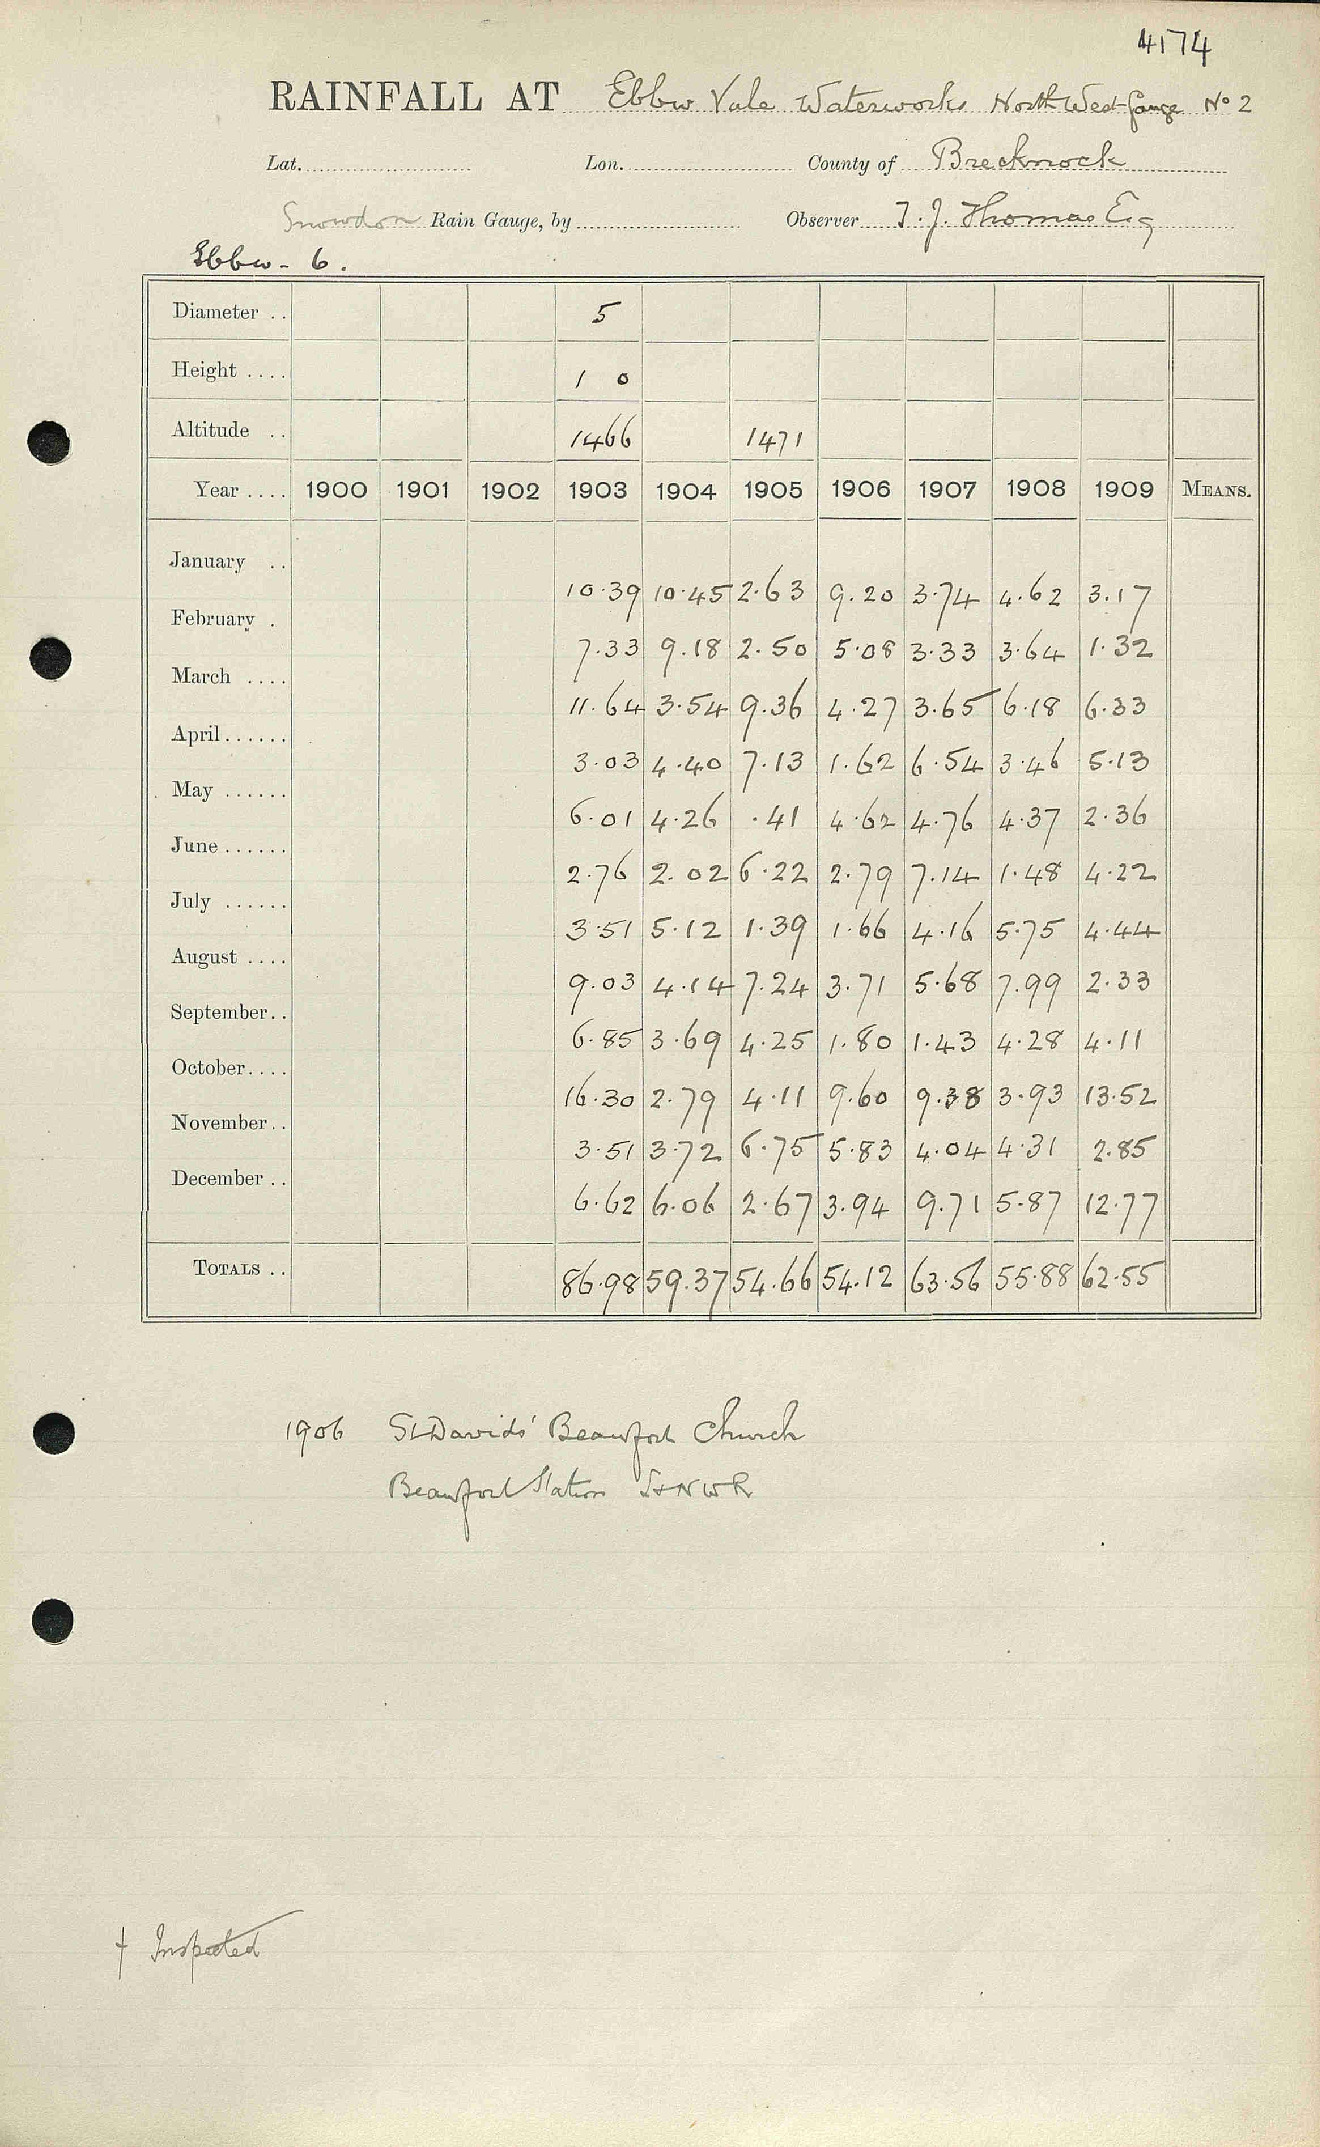 4174
RAINFALL AT Ebbw Vale Waterworks North West Gauge No 2
Lat. Lon. County of Brecknock
Snowdon Rain Gauge, by Observer T. J. Thomas Esq
Ebbw - 6.
Diameter .. 5
Height .... 1 0
Altitude .. 1466 1471
Year .... 1900 1901 1902 1903 1904 1905 1906 1907 1908 1909 MEANS.
January .. 10.39 10.45 2.63 9.20 3.74 4.62 3.17
February . 7.33 9.18 2.50 5.08 3.33 3.64 1.32
March .... 11.64 3.54 9.36 4.27 3.65 6.18 6.33
April...... 3.03 4.40 7.13 1.62 6.54 3.46 5.13
May ...... 6.01 4.26 .41 4.62 4.76 4.37 2.36
June...... 2.76 2.02 6.22 2.79 7.14 1.48 4.22
July ...... 3.51 5.12 1.39 1.66 4.16 5.75 4.44
August .... 9.03 4.14 7.24 3.71 5.68 7.99 2.33
September.. 6.85 3.69 4.25 1.80 1.43 4.28 4.11
October.... 16.30 2.79 4.11 9.60 9.38 3.93 13.52
November.. 3.51 3.72 6.75 5.83 4.04 4.31 2.85
December .. 6.62 6.06 2.67 3.94 9.71 5.87 12.77
TOTALS .. 86.98 59.37 54.66 54.12 63.56 55.88 62.55
1906 St Davids' Beaufort Church
Beaufort Station L&NWR
† Inspected